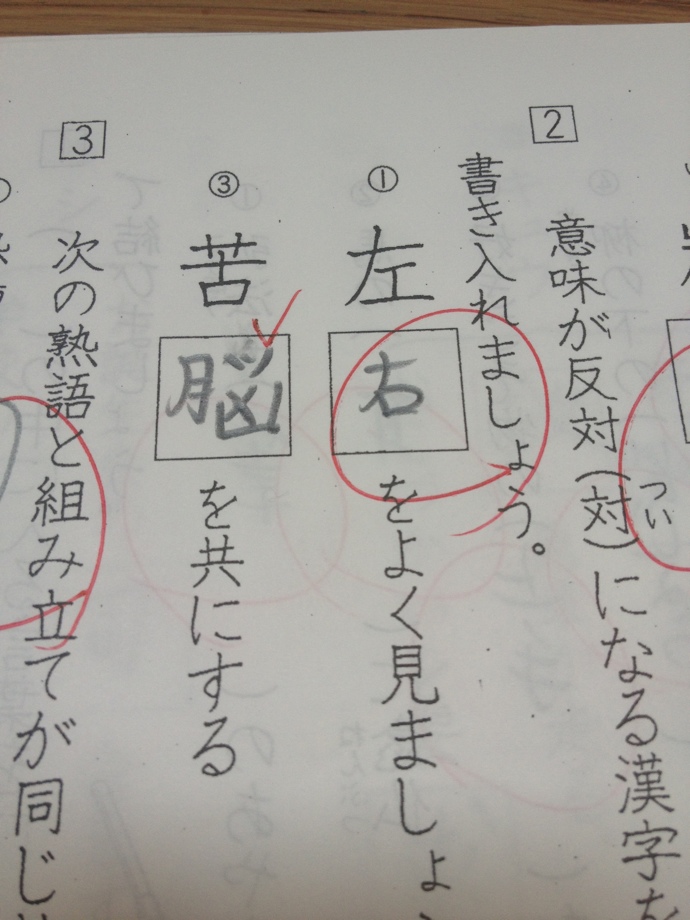 2
意味が反対(対)になる漢字を
つい
書き入れましょう。
① 左右をよく見ましょ
③ 苦脳を共にする
3
次の熟語と組み立てが同じ